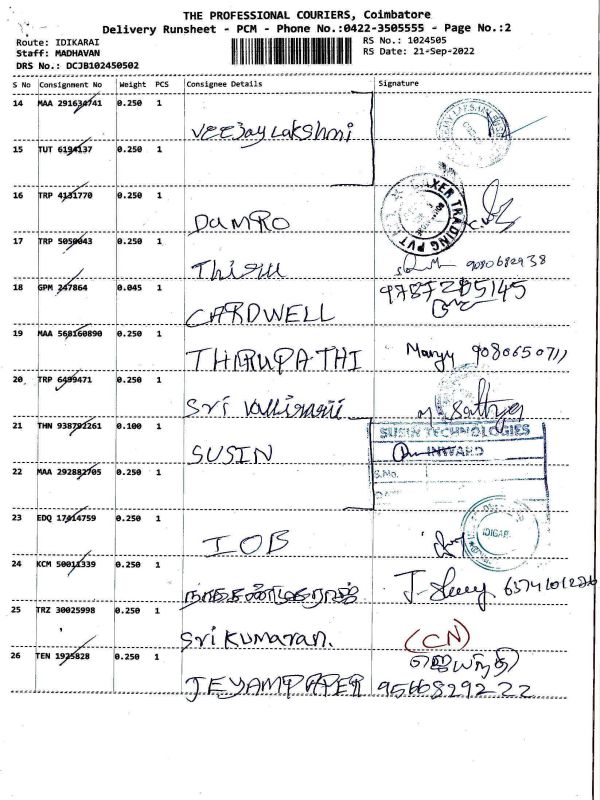 THE PROFESSIONAL COURIERS, Coimbatore
Delivery Runsheet - PCM - Phone No.:0422-3505555 - Page No.:2
Route: IDIKARAI
Staff: MADHAVAN
DRS No.: DCJB102450502
RS No.: 1024505
RS Date: 21-Sep-2022
S No Consignment No Weight PCS Consignee Details Signature
14 MAA 291634741 0.250 1 Veejay Lakshmi
15 TUT 6194137 0.250 1
16 TRP 4131770 0.250 1 DAMRO
TRADING PVT
17 TRP 5050043 0.250 1 Thisu 9080682938
18 GPM 247864 0.045 1 CARDWELL 9787205145
19 MAA 568160890 0.250 1 THIRUPATHI 9080650711
20 TRP 6499471 0.250 1 Sri
21 THN 938792261 0.100 1 SUSIN
SUSIN TECHNOLOGIES
INWARD
S.No.
22 MAA 292882705 0.250 1
23 EDQ 17414759 0.250 1 IOB
24 KCM 50011339 0.250 1
25 TRZ 30025998 0.250 1 Sri Kumaran. (CN)
26 TEN 1925828 0.250 1 JEYAM PAPER
ஜெயந்தி
9566829222